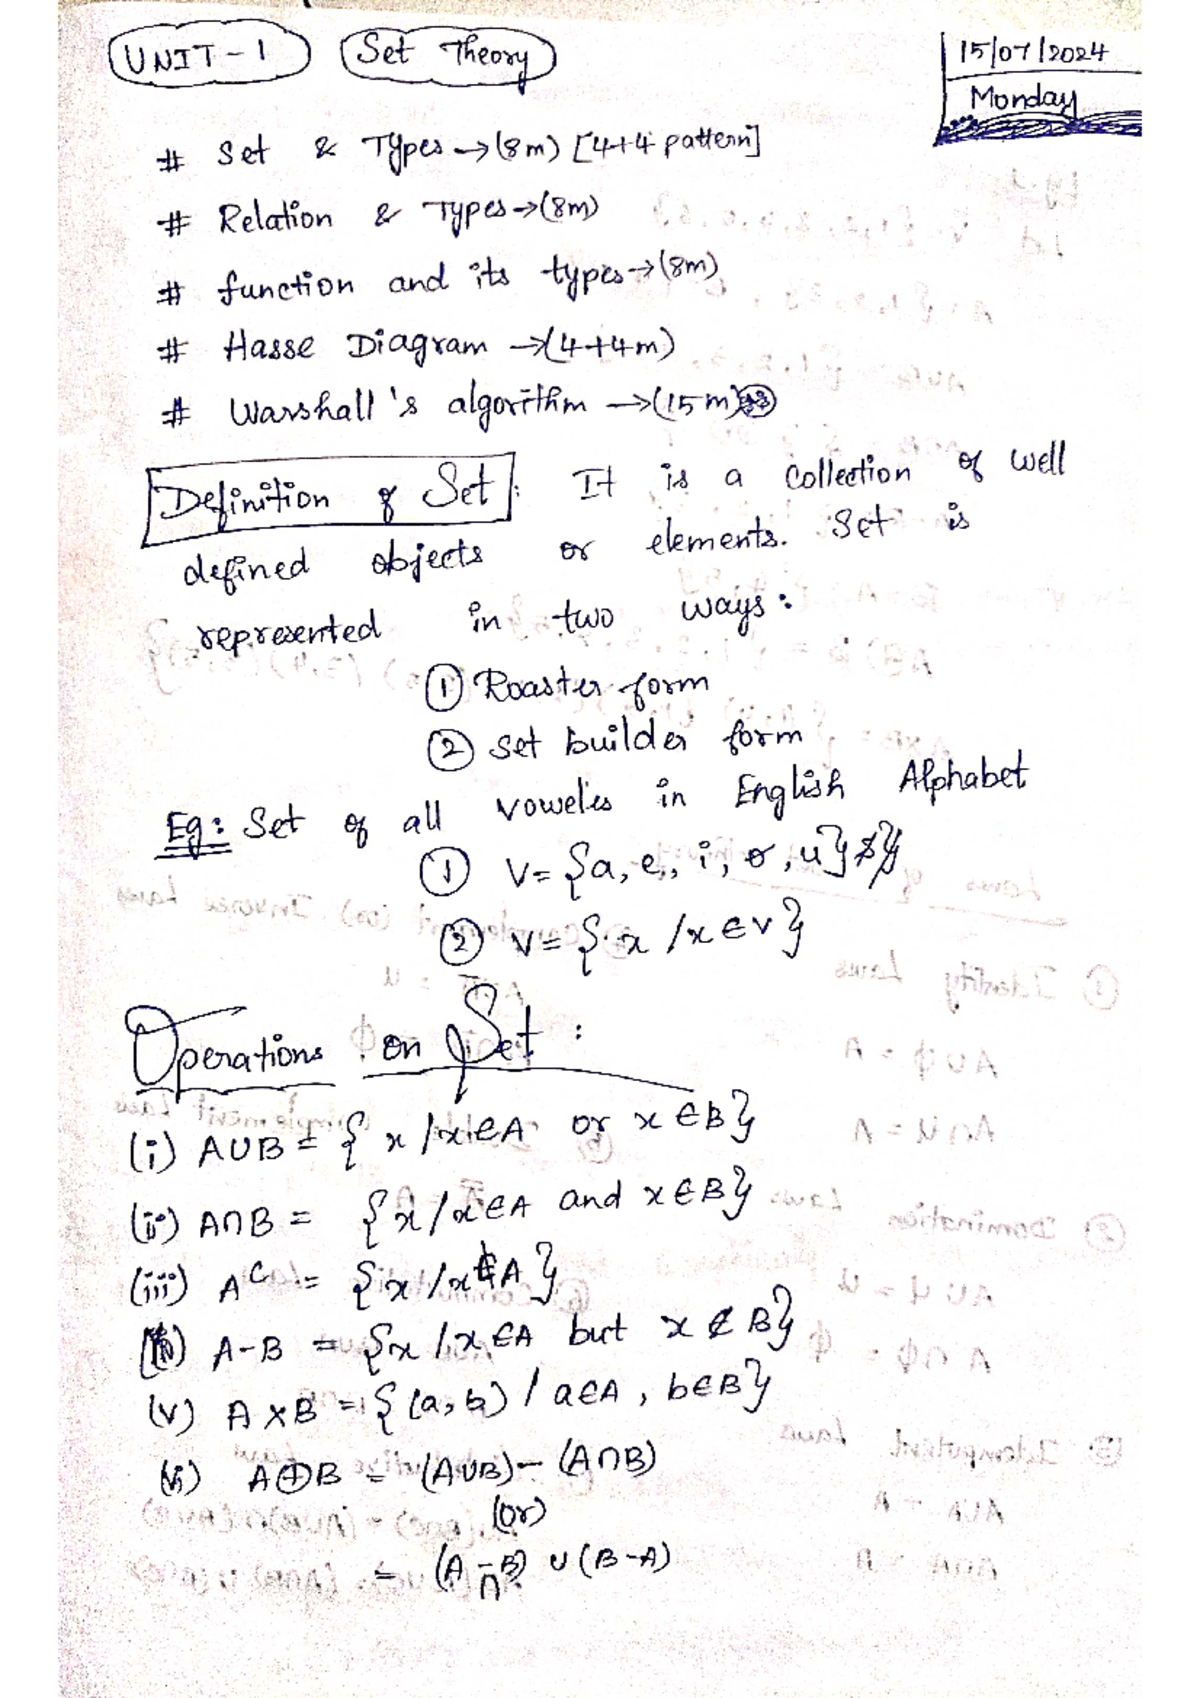 UNIT-1 Set Theory
15/07/2024
Monday
# Set & Types→(8m) [4+4 pattern]
# Relation & Types→(8m)
# function and its types→(8m)
# Hasse Diagram →(4+4m)
# Warshall's algorithm →(15m)
Definition of Set : It is a Collection of well
defined objects or elements. Set is
represented in two ways :
① Roaster form
② set builder form
Eg: Set of all voweles in English Alphabet
① V={a, e, i, o, u}
② V={x /x∈V}
Operations on Set :
(i) A∪B = { x /x∈A or x∈B}
(ii) A∩B = {x/x∈A and x∈B}
(iii) Aᶜ = {x /x∉A}
A-B = {x /x∈A but x∉B}
(v) A×B = {(a,b) / a∈A , b∈B}
(vi) A⊕B = (A∪B)-(A∩B)
(or)
= (A-B) ∪ (B-A)